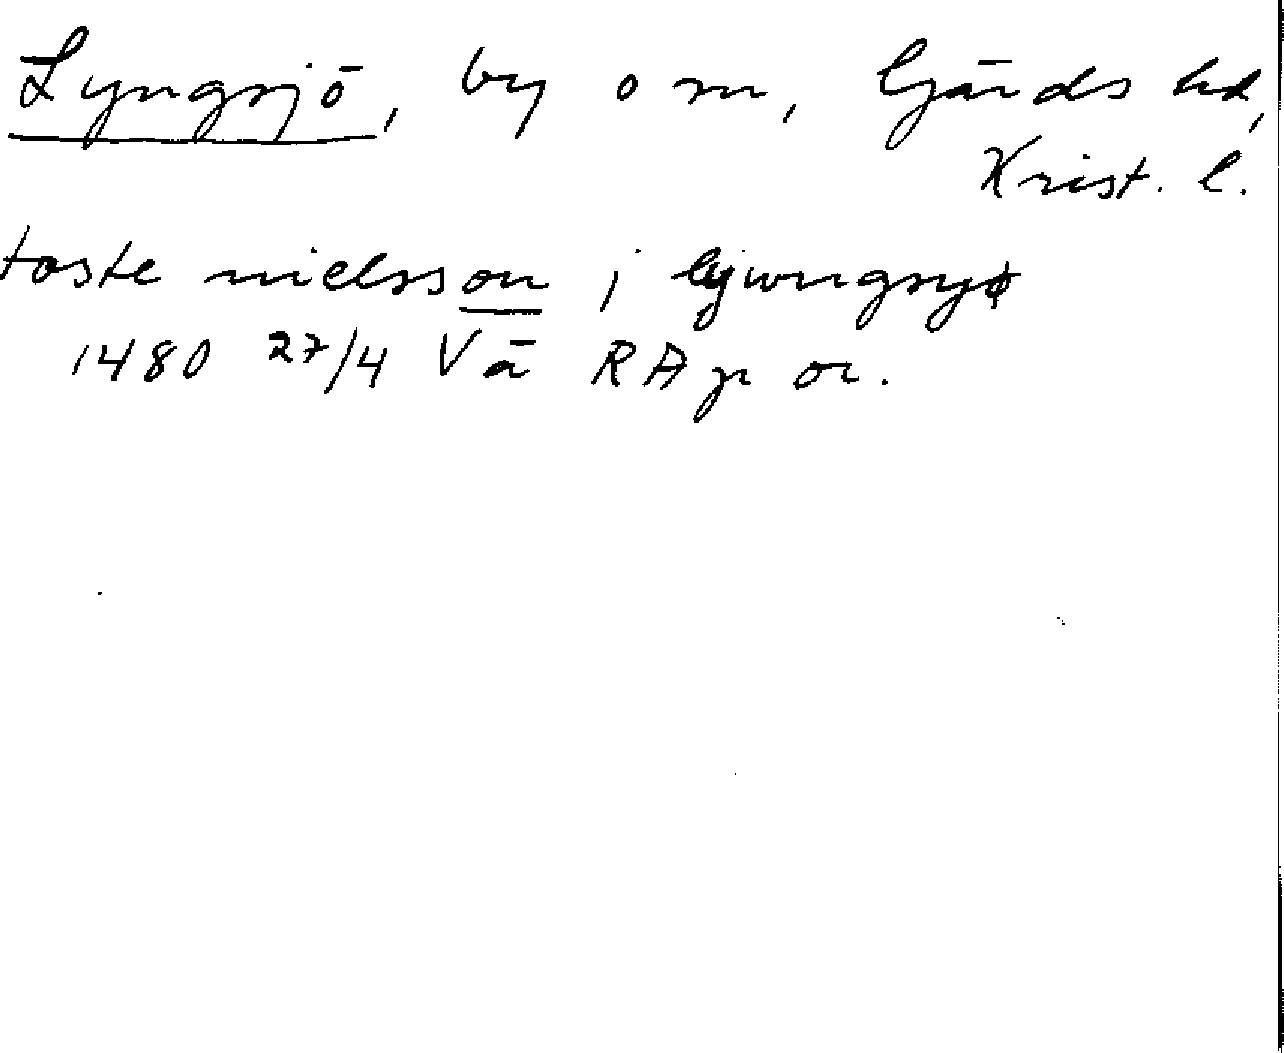 Lyngsjö, by o sn, Gärds hd,
Krist. l.
toste nielsson i lywngsyø
1480 27/4 Vä RA p or.